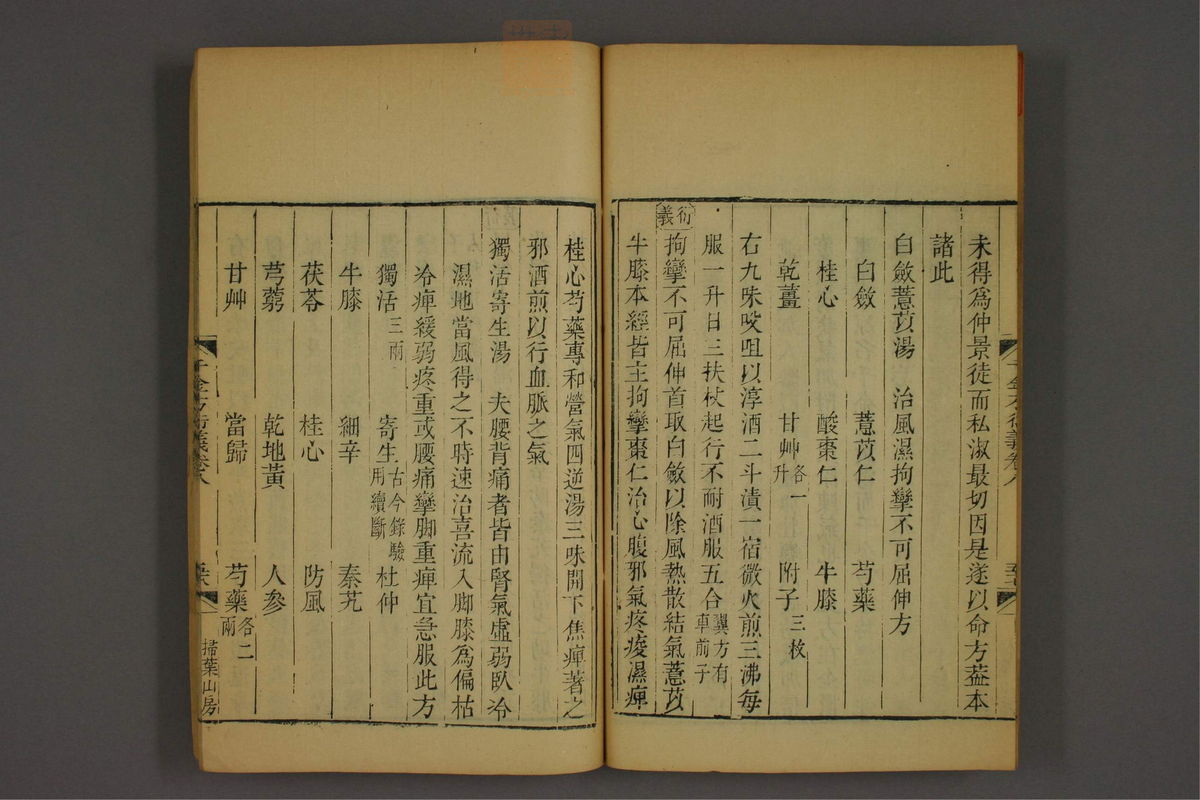 未得為仲景徒而私淑最切因是遂以命方葢本
諸此
白斂薏苡湯　治風濕拘攣不可屈伸方
白斂　薏苡仁　芍藥
桂心　酸棗仁　牛膝
乾薑　甘艸各一升　附子三枚
右九味㕮咀以淳酒二斗漬一宿微火煎三沸每
服一升日三扶杖起行不耐酒服五合翼方有車前子
衍義
拘攣不可屈伸首取白斂以除風熱散結氣薏苡
牛膝本經皆主拘攣棗仁治心腹邪氣疼痠濕痺
桂心芍藥專和營氣四逆湯三味開下焦痺著之
邪酒煎以行血脈之氣
獨活寄生湯　夫腰背痛者皆由腎氣虛弱臥冷
濕地當風得之不時速治喜流入脚膝為偏枯
冷痺緩弱疼重或腰痛攣脚重痺宜急服此方
獨活三兩　寄生古今錄驗用續斷　杜仲
牛膝　細辛　秦艽
茯苓　桂心　防風
芎藭　乾地黃　人參
甘艸　當歸　芍藥各二兩
千金方衍義卷八
掃葉山房